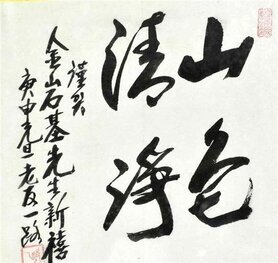 山色
清净
谨贺
金山石基先生新禧
庚申元旦 老友一路